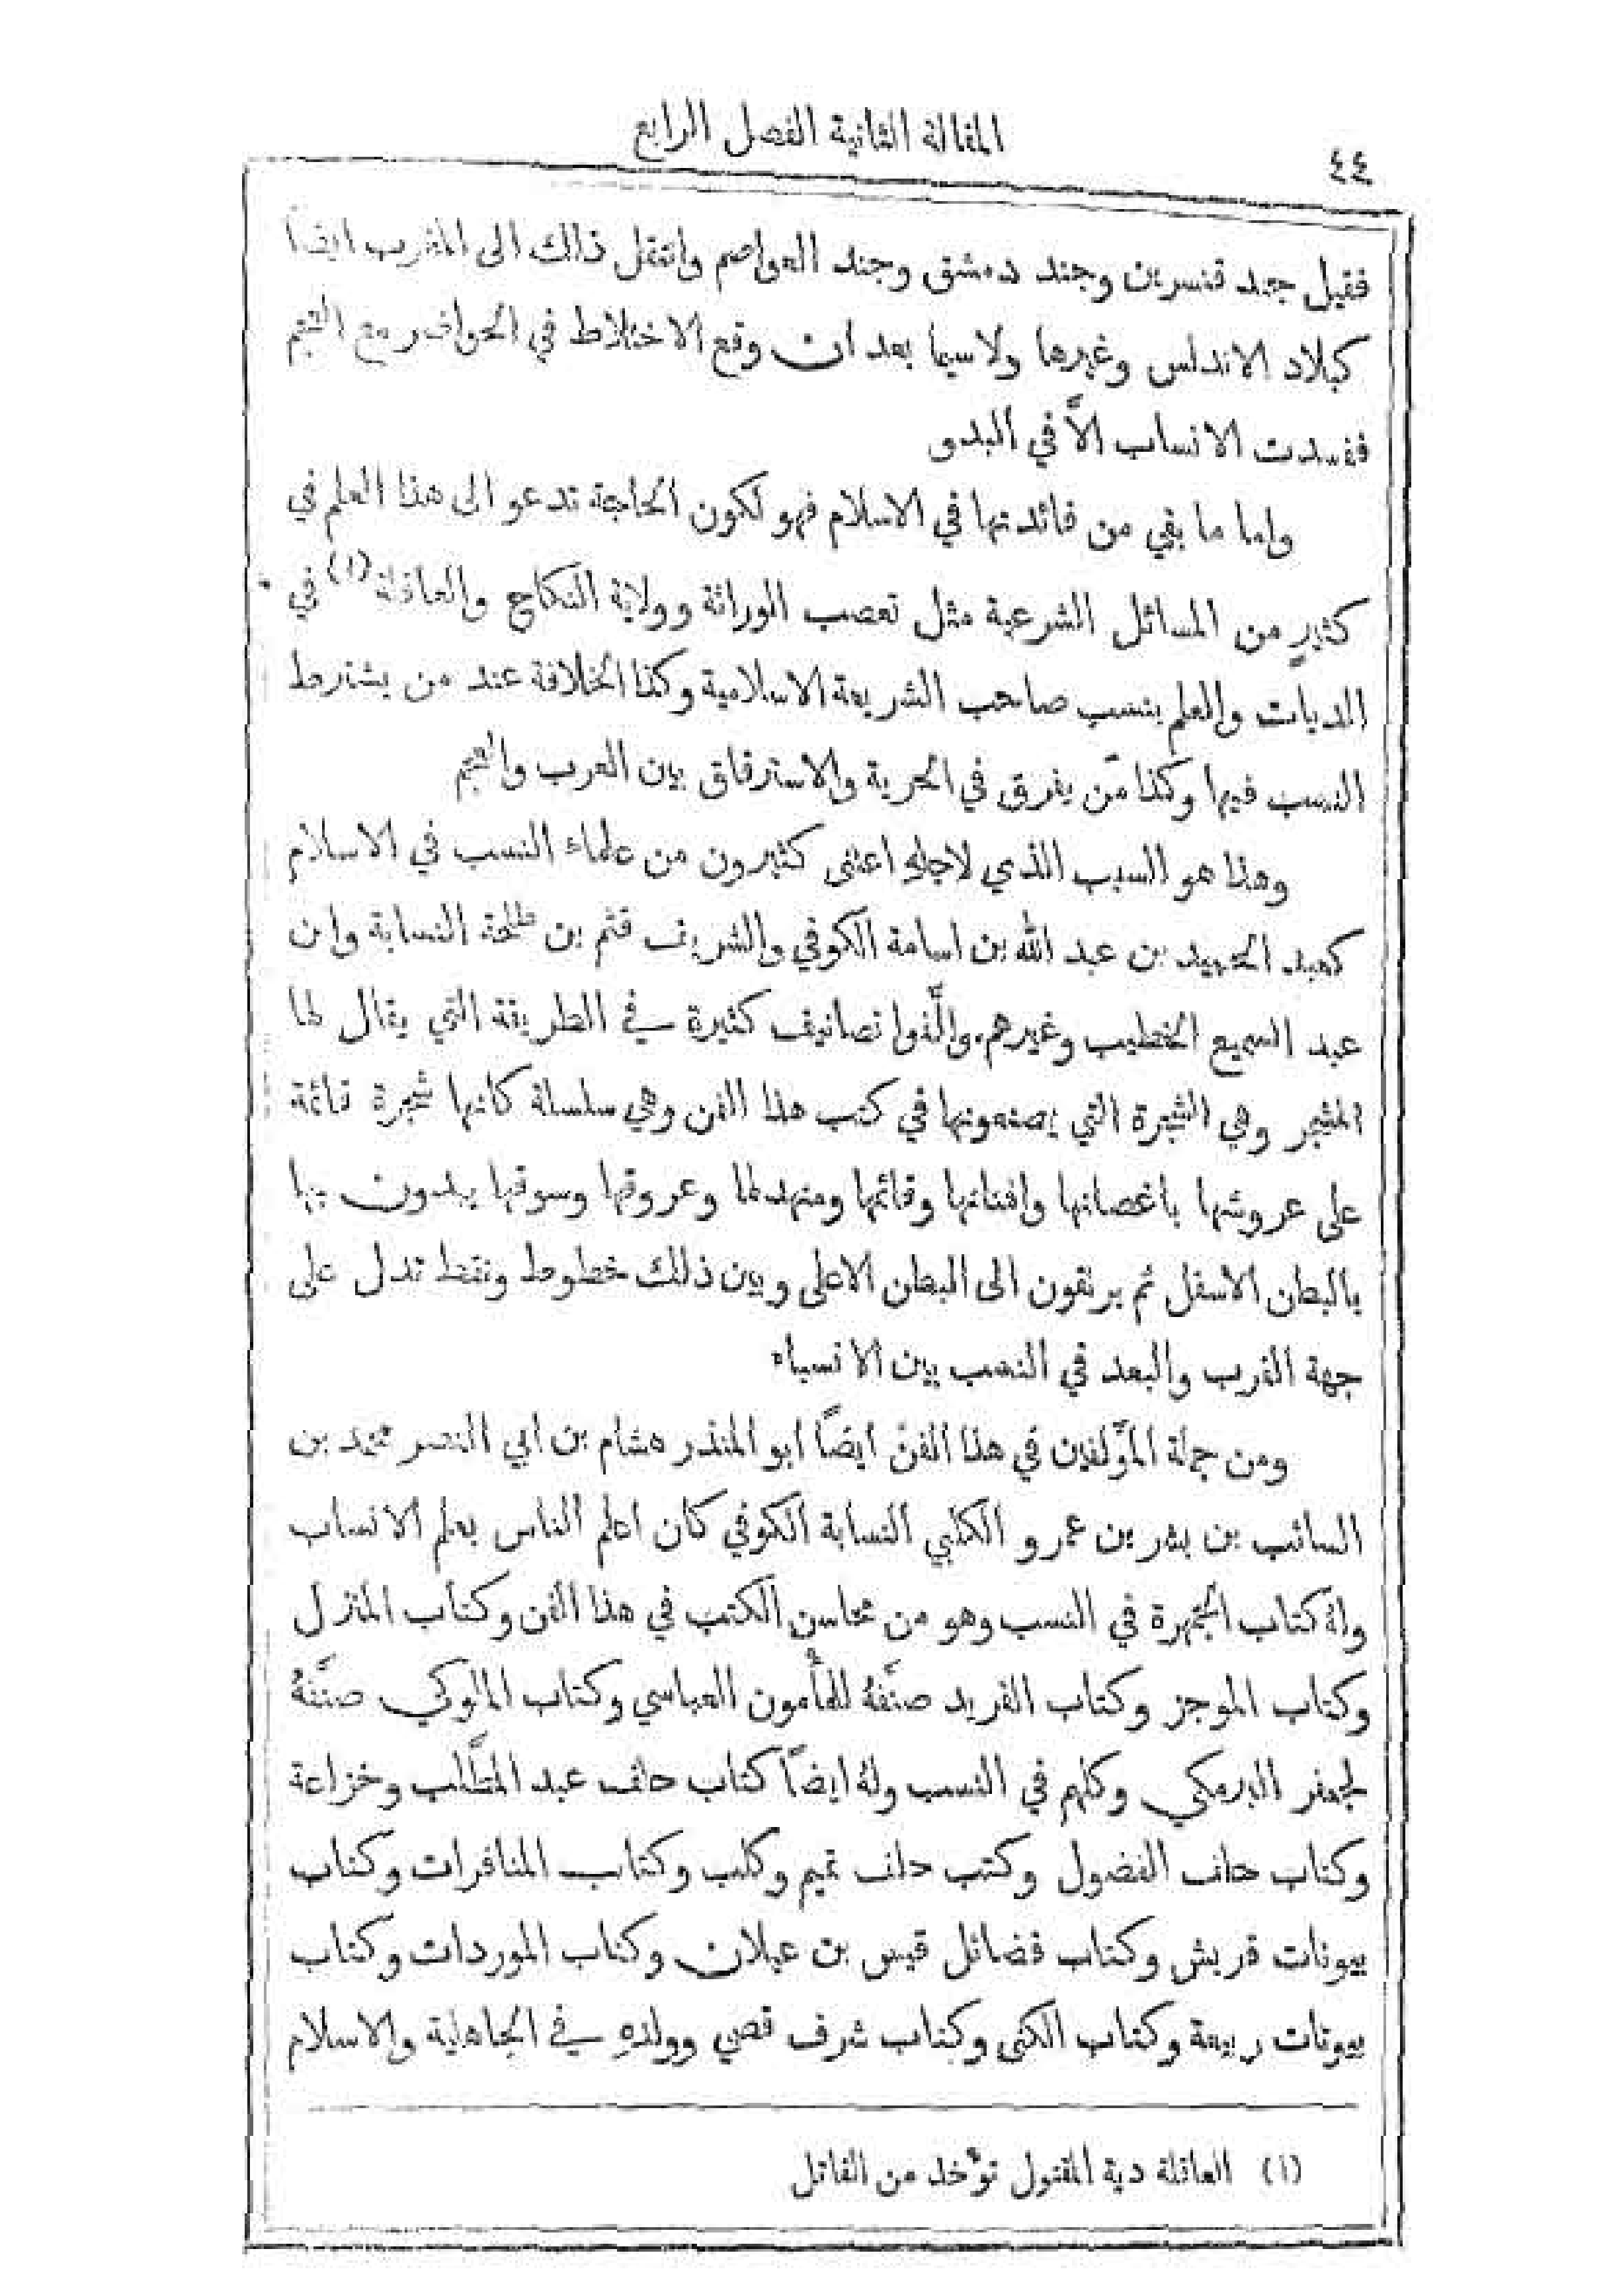 ٤٤
المقالة الثانية الفصل الرابع
فقيل جند قنسرين وجند دمشق وجند العواصم وانتقل ذلك الى المغرب ايضاً
كبلاد الاندلس وغيرها ولاسيما بعد ان وقع الاختلاط في الحواضر مع العجم
ففسدت الانساب الاَّ في البدو
واما ما بقي من فائدتها في الاسلام فهو لكون الحاجة تدعو الى هذا العلم في
كثيرٍ من المسائل الشرعية مثل تعصب الوراثة وولاية النكاح والعاقلة (١) في
الديات والعلم بنسب صاحب الشريعة الاسلامية وكذا الخلافة عند من يشترط
النسب فيها وكذا مَن يفرق في الحرية والاسترقاق بين العرب والعجم
وهذا هو السبب الذي لاجلهِ اعتنى كثيرون من علماء النسب في الاسلام
كعبد الحميد بن عبد الله بن اسامة الكوفي والشريف قثم بن طلحة النسابة وابن
عبد السميع الخطيب وغيرهم. والَّفوا تصانيف كثيرة في الطريقة التي يقال لها
المشجر وهي الشجرة التي يصنعونها في كتب هذا الفن وهي سلسلة كانها شجرة قائمة
على عروشها باغصانها وافنانها وقائمها ومنهدلها وعروقها وسوقها يبدون بها
بالبطن الاسفل ثم يرتقون الى البطن الاعلى وبين ذلك خطوط ونقط تدل على
جهة القرب والبعد في النسب بين الانسباء
ومن جملة المؤَلفين في هذا الفنّ ايضاً ابو المنذر هشام بن ابي النصر محمد بن
السائب بن بشر بن عمرو الكلبي النسابة الكوفي كان اعلم الناس بعلم الانساب
ولهُ كتاب الجمهرة في النسب وهو من محاسن الكتب في هذا الفن وكتاب المنزل
وكتاب الموجز وكتاب الفريد صنَّفهُ للمأمون العباسي وكتاب الملوكي صنَّفهُ
لجعفر البرمكي وكلهم في النسب ولهُ ايضاً كتاب حلف عبد المطَّلب وخزاعة
وكتاب حلف الفضول وكتب حلف تميم وكلب وكتاب المنافرات وكتاب
بيوتات قريش وكتاب فضائل قيس بن عيلان وكتاب الموردات وكتاب
بيوتات ربيعة وكتاب الكنى وكتاب شرف قصي وولدهِ في الجاهلية والاسلام
(١) العاقلة دية المقتول تؤخذ من القاتل